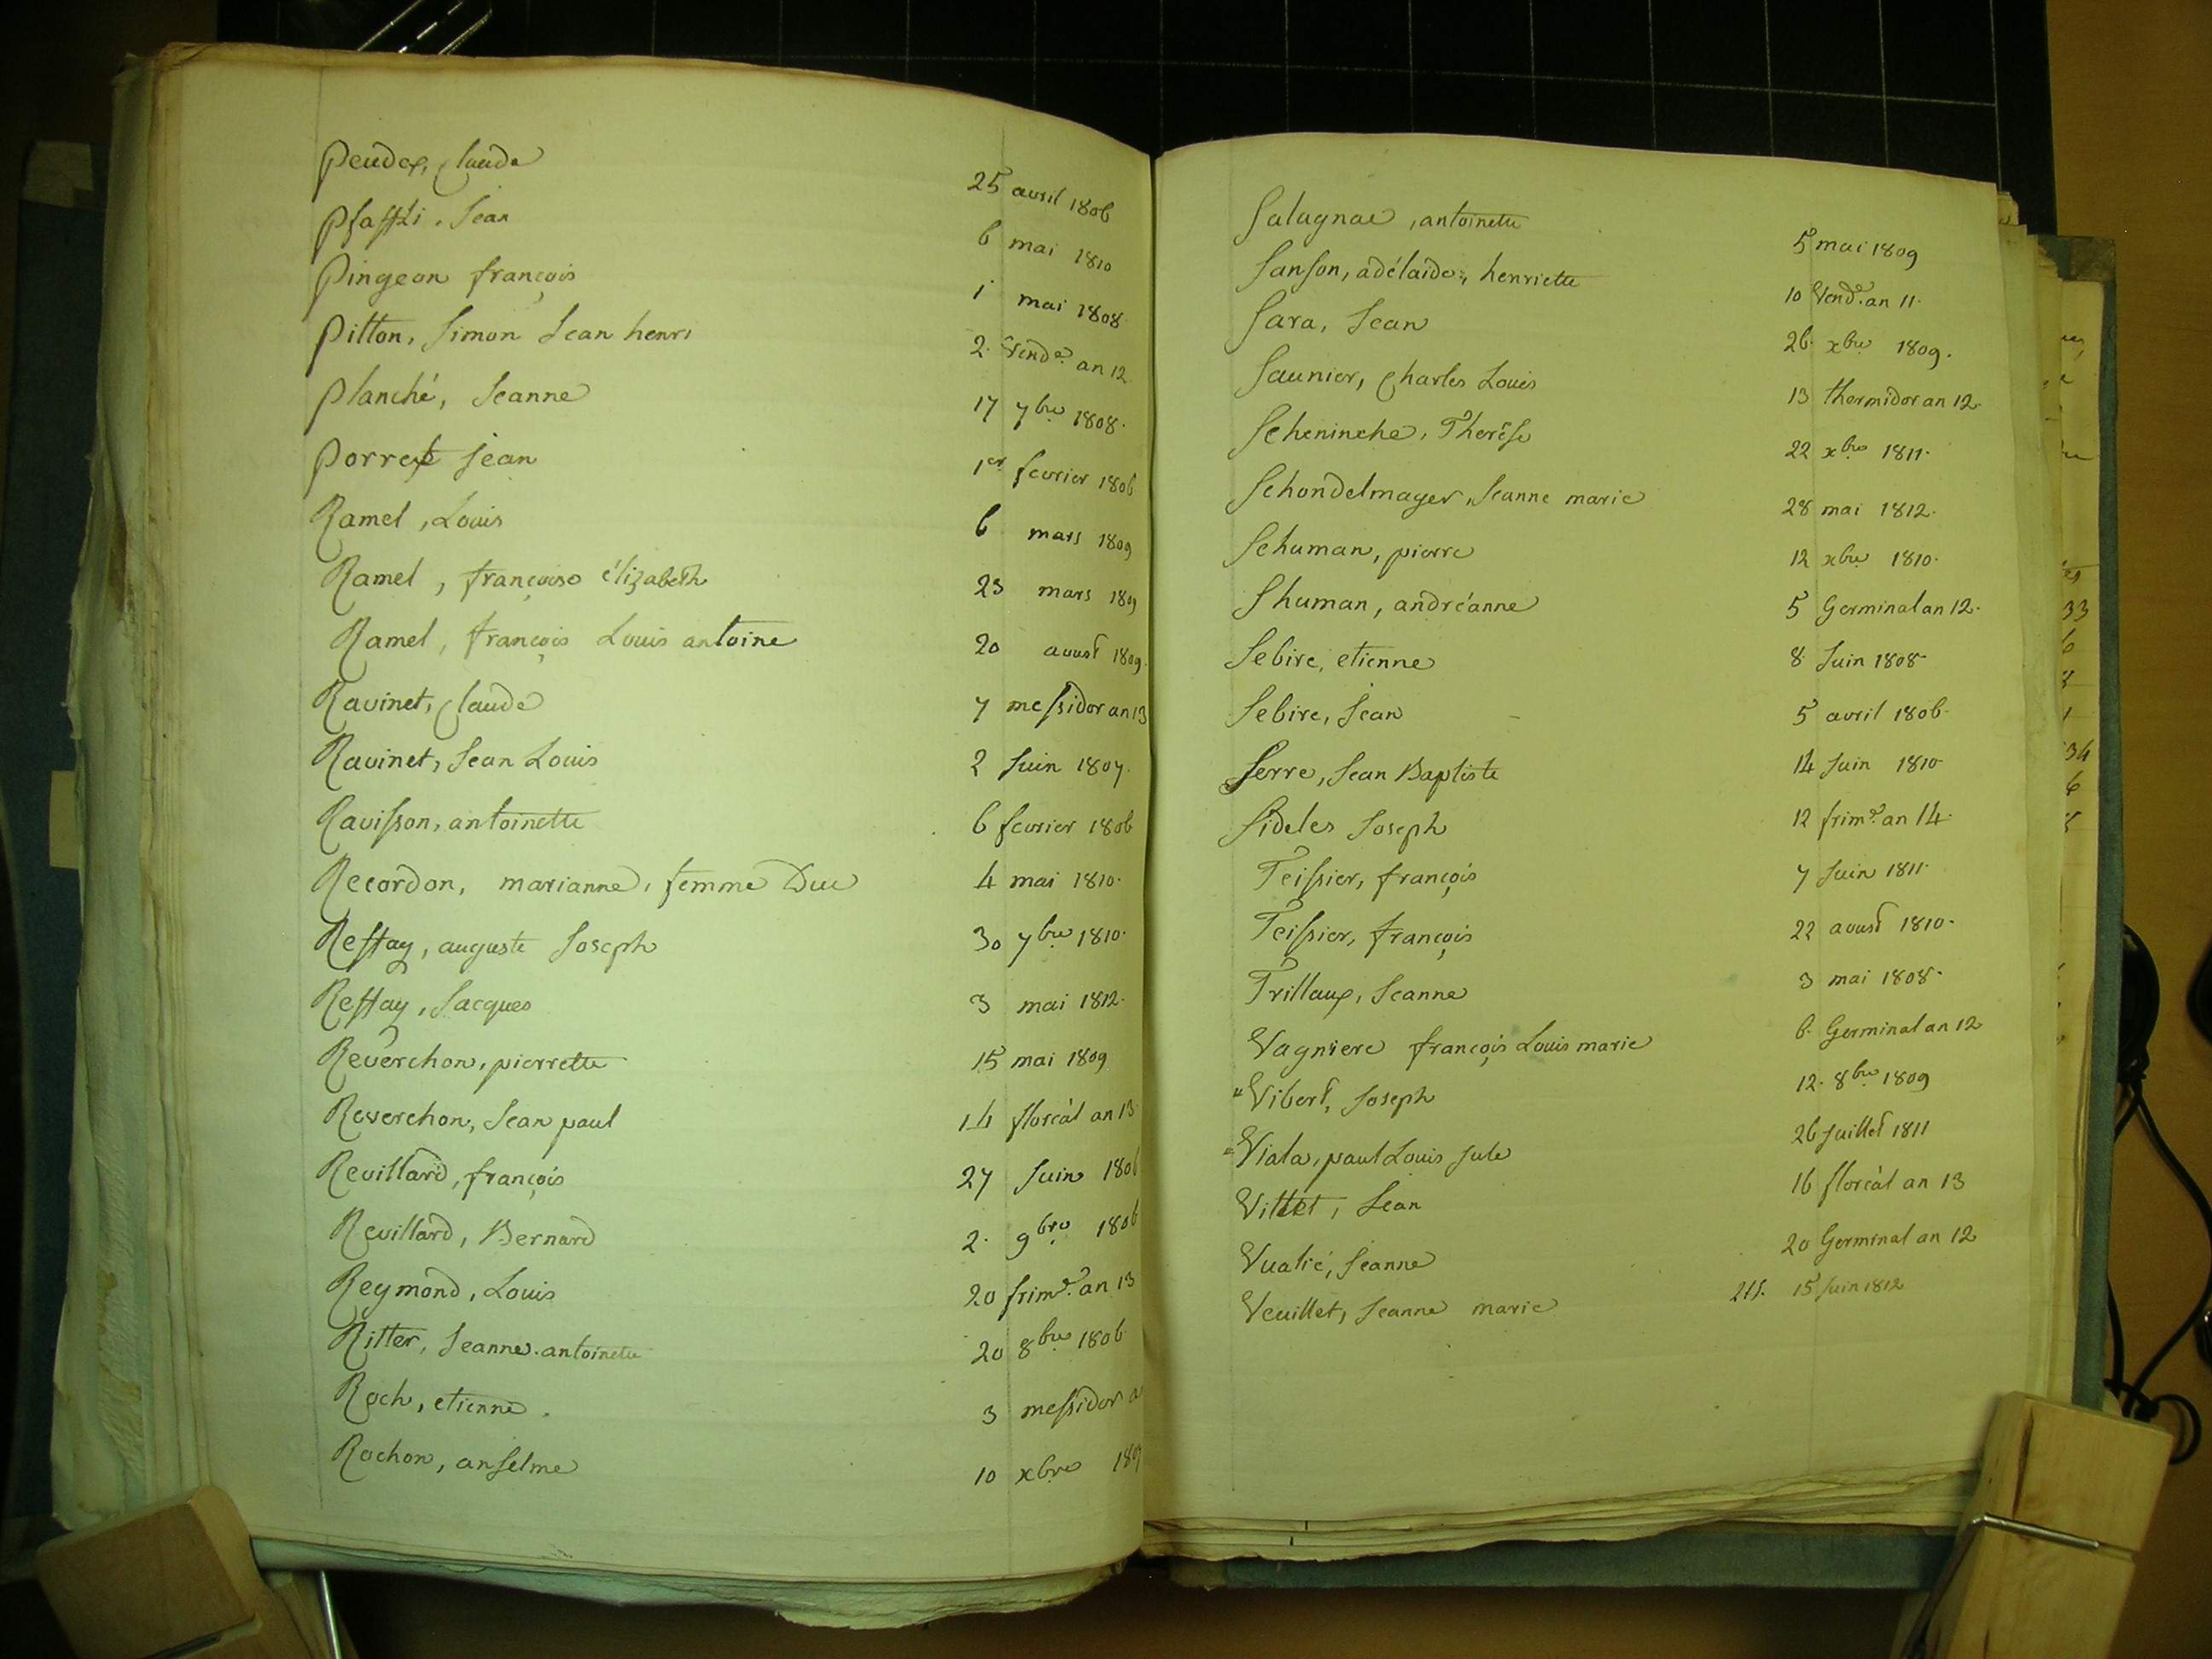 Peudex, Claude 25 avril 1806
Pfaffli, Jean 6 mai 1810
Pingeon françois 1 mai 1808.
Pitton, Simon Jean henri 2. Vendre. an 12
Planché, Jeanne 17 7bre 1808.
Porret Jean 1er fevrier 1806
Ramel, Louis 6 mars 1809
Ramel, françoise élizabeth 23 mars 1809
Ramel, françois Louis antoine 20 aoust 1809.
Ravinet, Claude 7 messidor an 13
Ravinet, Jean Louis 2 Juin 1807.
Ravisson, antoinette 6 fevrier 1806
Recordon, marianne, femme Duc 4 mai 1810.
Reffay, auguste Joseph 30 7bre 1810.
Reffay, Jacques 3 mai 1812.
Reverchon, pierrette 15 mai 1809
Reverchon, Jean paul 14 floréal an 13
Revillard, françois 27 Juin 1806
Revillard, Bernard 2. 9bre 1806
Reymond, Louis 20 frimre. an 13
Ritter, Jeanne antoinette 20 8bre 1806
Roch, etienne. 3 messidor
Rochon, anselme 10 xbre
Salagnac, antoinette 5 mai 1809
Sanson, adélaïde, henriette 10 Vendre. an 11.
Sara, Jean 26. xbre 1809.
Saunier, Charles Louis 13 thermidor an 12.
Scheninche, Therèse 22 xbre 1811.
Schondelmayer, Jeanne marie 28 mai 1812.
Schuman, pierre 12 xbre 1810.
Shuman, andréanne 5 Germinal an 12.
Sebire, etienne 8. Juin 1808.
Sebire, Jean 5 avril 1806.
Serre, Jean Baptiste 14 Juin 1810
Sideles Joseph 12 frimre. an 14.
Teissier, françois 7 Juin 1811.
Teissier, françois 22 aoust 1810.
Trillaux, Jeanne 3 mai 1808.
Vagniere françois Louis marie 6. Germinal an 12
"Vibert, Joseph 12. 8bre 1809
"Viala, paul Louis Jule 26 Juillet 1811
Villet, Jean 16 floréal an 13
Vualié, Jeanne 20 Germinal an 12
Veuillet, Jeanne marie 211. 15 Juin 1812